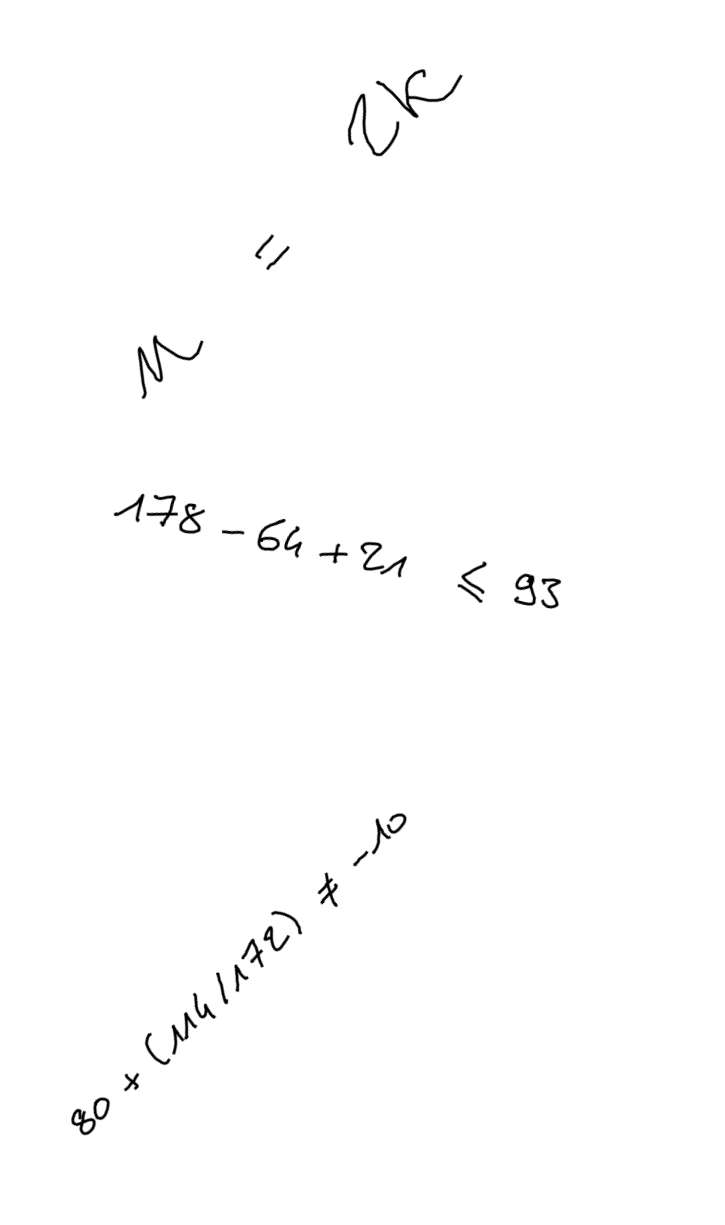 M = 2K
178 - 64 + 21 ≤ 93
80 + (114/172) ≠ -10